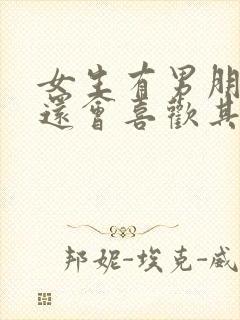 女生有男朋
還會喜歡其
邦妮-埃克-威